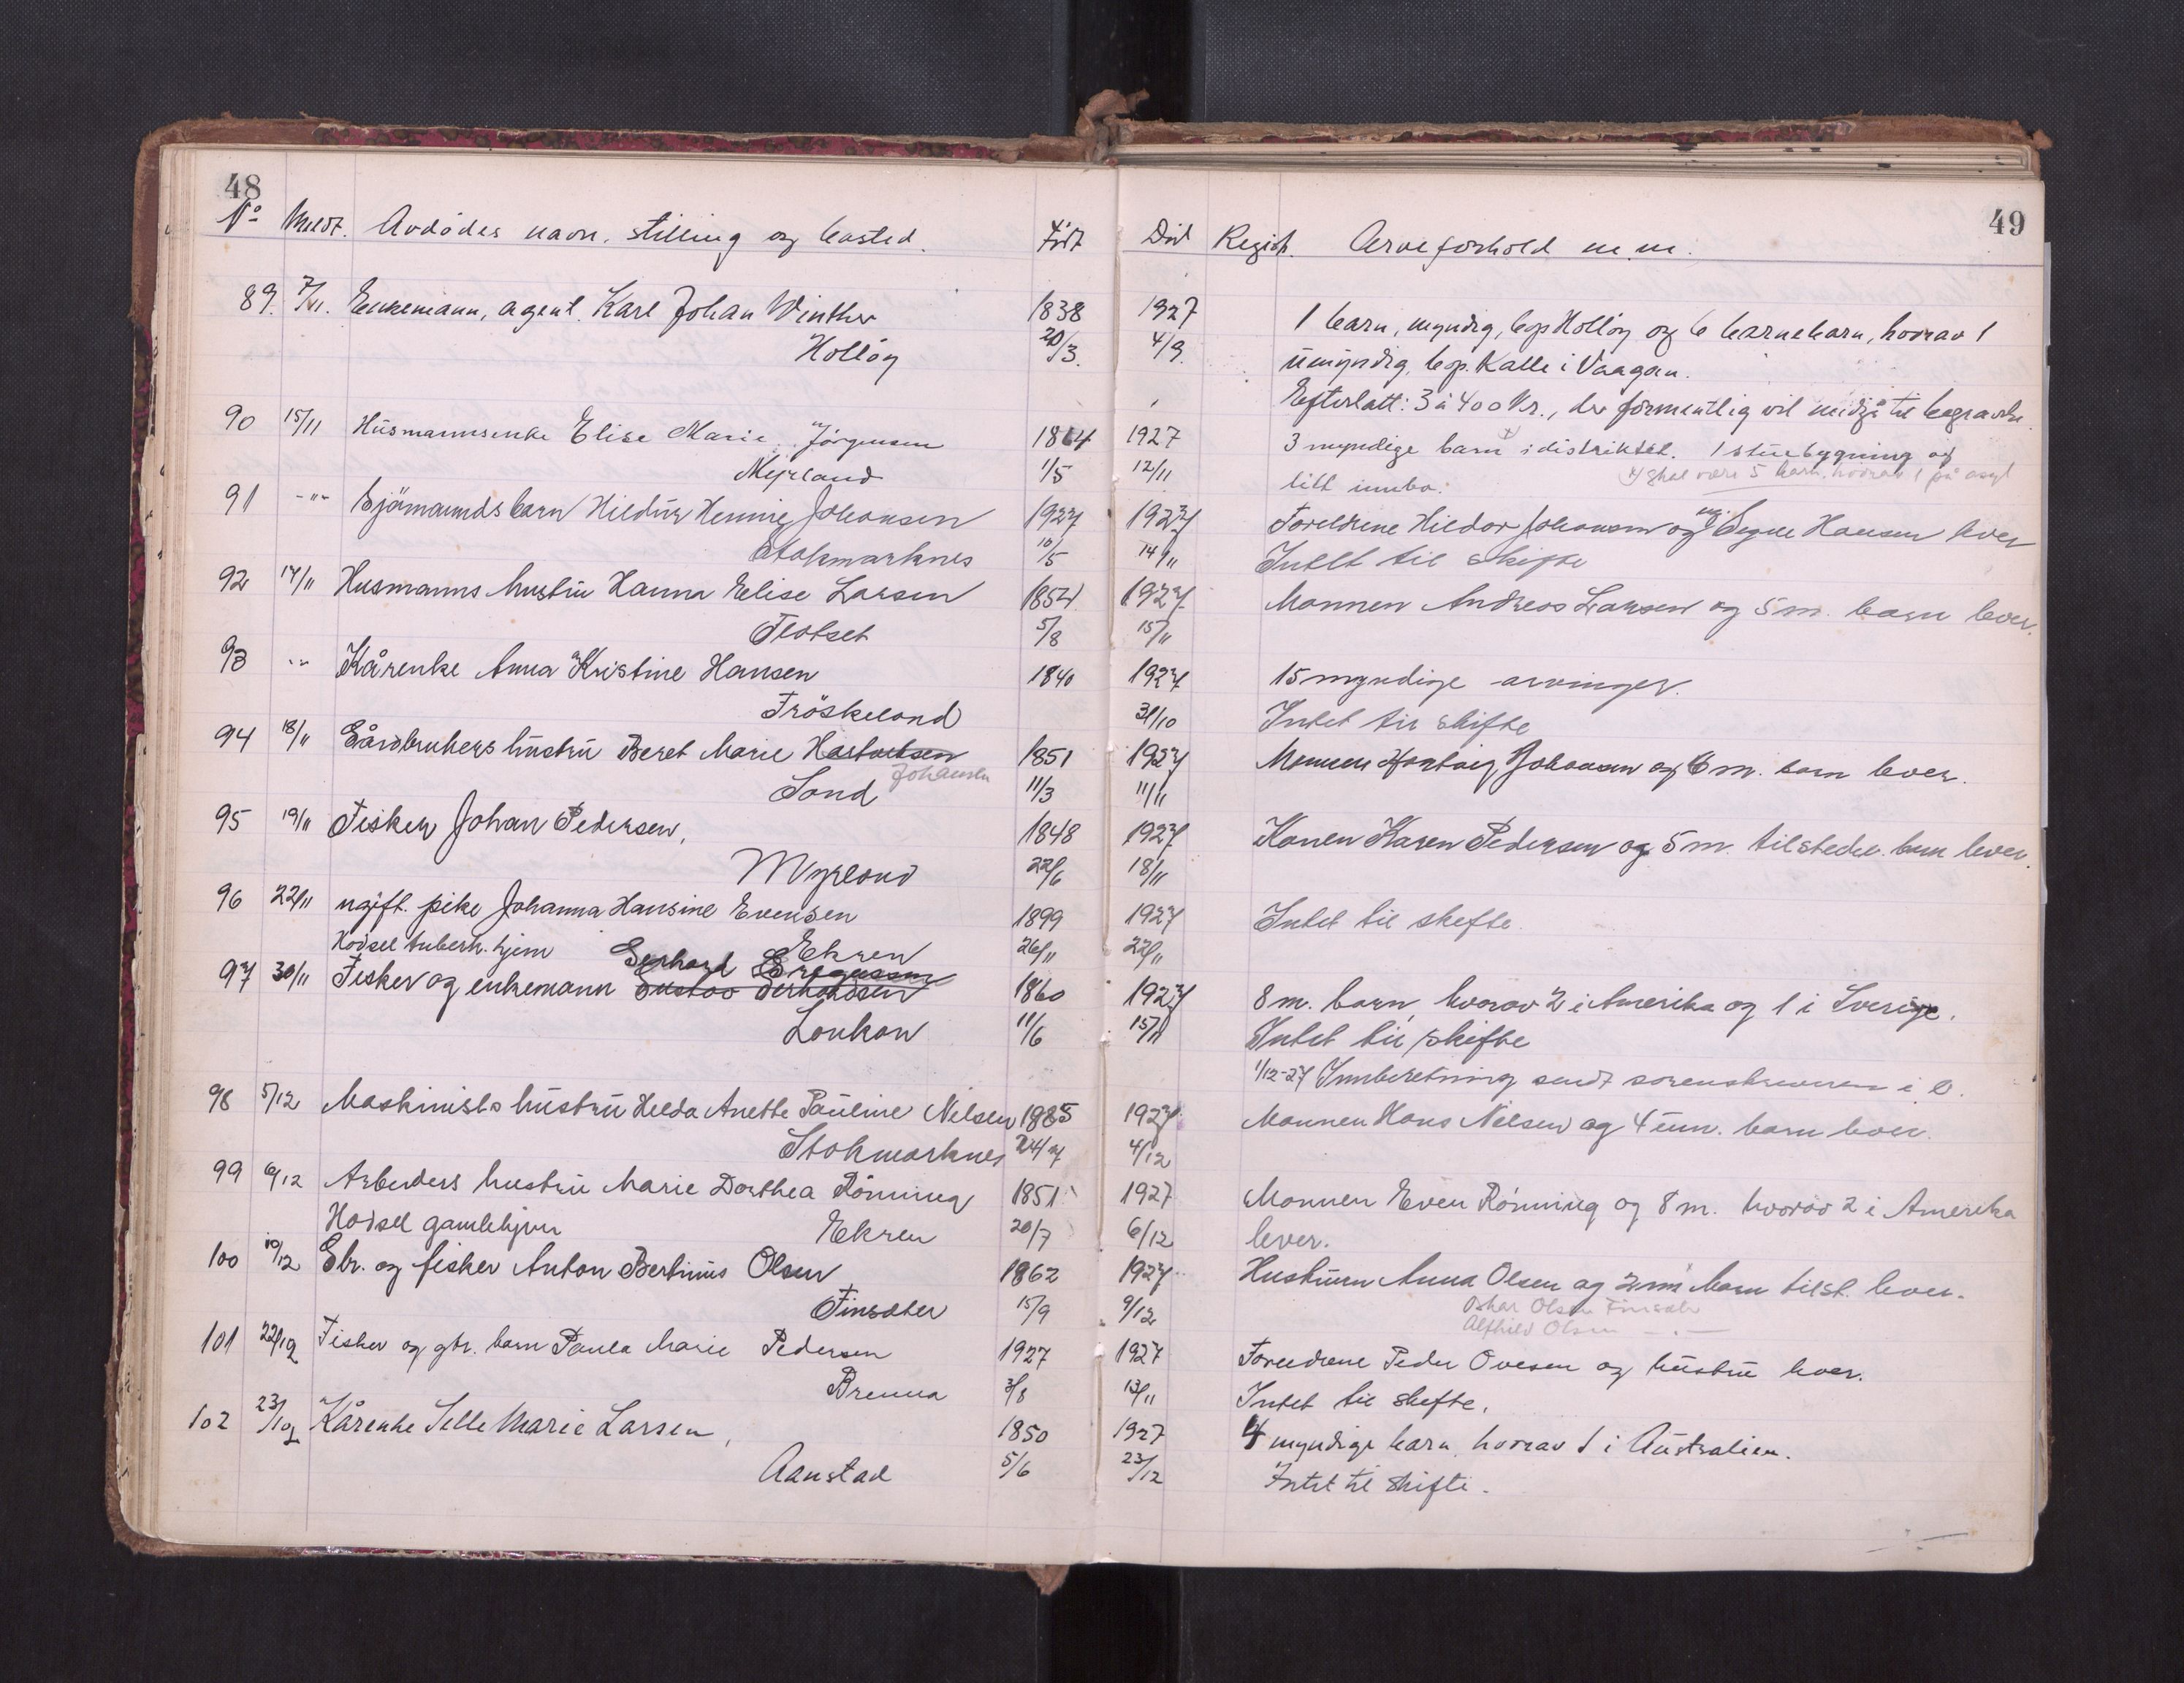 48
No Meldt. Avdødes navn, stilling og bosted. Født Død Registr. Arveforhold m.m. 49
89. 7/11. Enkemann, agent Karl Johan Winther 1838 1927 1 barn, myndig, bop Holløy og 6 barnebarn, hvorav 1
Holløy 20/3. 4/9. umyndig, bop. Kalle i Vaagan.
Efterlatt: 3 à 400 Kr., der formentlig vil medgå til begravelse
90 15/11 Husmannsenke Elise Marie Jörgensen 1864 1927 3 myndige barn x) i distriktet. 1 stuebygning og
Myrland 1/5 12/11 litt innbo. x) Skal være 5 barn, hvorav 1 på asyl
91 -"- Sjömannds barn Hildur Hennie Johansen 1927 1927 Foreldrene Hildor Johansen og ug. Signe Hansen lever
Stokmarknes 10/5 14/11 Intet til skifte
92 17/11 Husmanns hustru Hanna Elise Larsen 1854 1927 Mannen Andreas Larsen og 5 m. barn lever.
Flatset 5/8 15/11
93 -"- Kårenke Anna Kristine Hansen 1840 1927 15 myndige arvinger.
Fröskeland 31/10 Intet til skifte
94 18/11 Gårdbrukers hustru Beret Marie Hartvigsen 1851 1927 Mannen Hartvig Johansen og 6 m. barn lever.
Johansen
Sand 11/3 11/11
95 19/11 Fisker Johan Pedersen, 1848 1927 Konen Karen Pedersen og 5 m. tilstede. barn lever.
Myrland 22/6 18/11
96 22/11 ugift. pike Johanna Hansine Evensen 1899 1927 Intet til skifte
Hadsel tuberk. hjem Ekren 26/11 22/11
Gerhard
97 30/11 Fisker og enkemann Gustav Gerhardsen 1860 1927 8 m. barn, hvorav 2 i Amerika og 1 i Sverige.
Lonkan 11/6 15/11 Intet til skifte
1/12-27 Innberetning sendt sorenskriveren i S.
98 5/12 Maskinists hustru Helda Anette Pauline Nilsen 1885 1927 Mannen Hans Nilsen og 4 um. barn lever.
Stokmarknes 24/7 4/12
99 6/12 Arbeiders hustru Marie Dorthea Rönning 1851 1927 Mannen Even Rönning og 8 m. hvorav 2 i Amerika
Hadsel gamlehjem Ekren 20/7 6/12 lever.
100 10/12 Gbr. og fisker Anton Bertinus Olsen 1862 1927 Hustruen Anna Olsen og 2 m barn tilst. lever.
Finsæter 15/9 9/12 Oskar Olsen Finsæter
Alfhild Olsen -"-
101 22/12 Fisker og gbr. barn Paula Marie Pedersen 1927 1927 Foreldrene Peder Ovesen og hustru lever.
Brenna 3/8 13/11 Intet til skifte.
102 23/12 Kårenke Selle Marie Larsen, 1850 1927 4 myndige barn, hvorav 1 i Australien.
Aanstad 5/6 23/12 Intet til skifte.